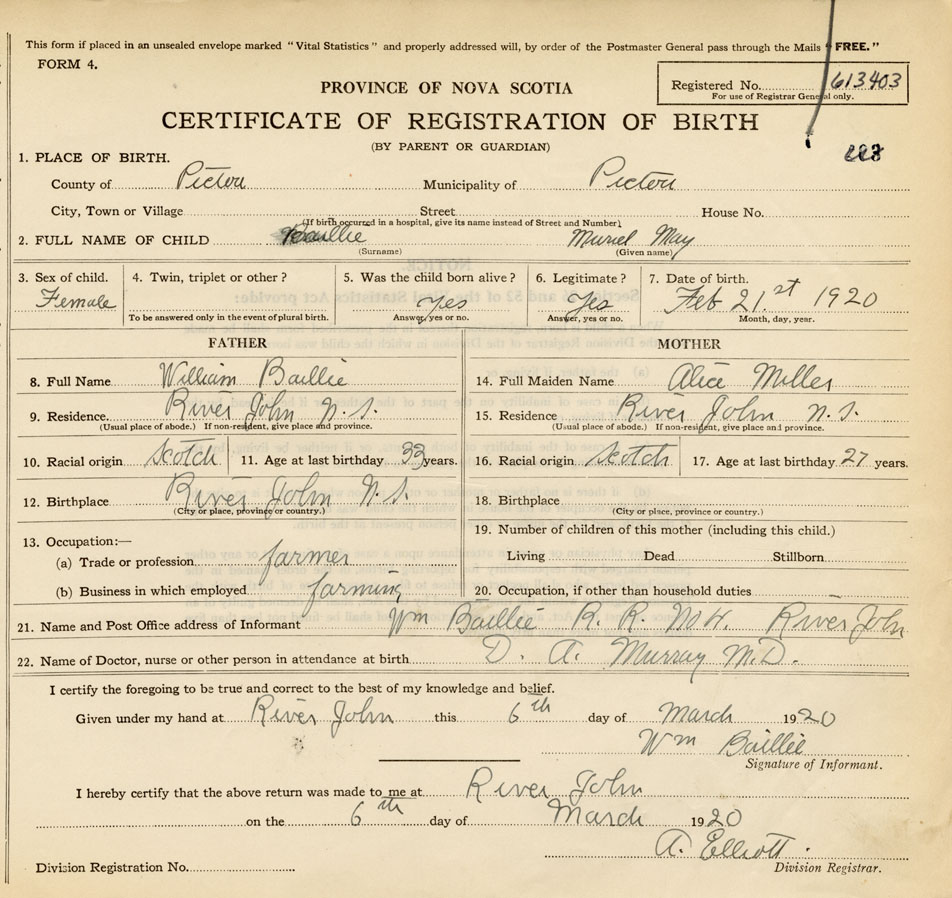 This form if placed in an unsealed envelope marked "Vital Statistics" and properly addressed will, by order of the Postmaster General pass through the Mails "FREE."
FORM 4.
PROVINCE OF NOVA SCOTIA
Registered No. 613403
For use of Registrar General only.
CERTIFICATE OF REGISTRATION OF BIRTH
(BY PARENT OR GUARDIAN)
1. PLACE OF BIRTH.
County of Pictou Municipality of Pictou
City, Town or Village Street House No.
(If birth occurred in a hospital, give its name instead of Street and Number)
2. FULL NAME OF CHILD Baillie Muriel May
(Surname) (Given name)
3. Sex of child. 4. Twin, triplet or other? 5. Was the child born alive? 6. Legitimate? 7. Date of birth.
Female Yes Yes Feb 21st 1920
To be answered only in the event of plural birth. Answer, yes or no. Answer, yes or no. Month, day, year.
FATHER MOTHER
8. Full Name William Baillie 14. Full Maiden Name Alice Miller
9. Residence River John N.S. 15. Residence River John N.S.
(Usual place of abode.) If non-resident, give place and province. (Usual place of abode.) If non-resident, give place and province.
10. Racial origin Scotch 11. Age at last birthday 33 years. 16. Racial origin Scotch 17. Age at last birthday 27 years.
12. Birthplace River John N.S. 18. Birthplace
(City or place, province or country.) (City or place, province or country.)
19. Number of children of this mother (including this child.)
13. Occupation:—
(a) Trade or profession farmer Living Dead Stillborn
(b) Business in which employed farming 20. Occupation, if other than household duties
21. Name and Post Office address of Informant Wm Baillie R. R. No 4. River John
22. Name of Doctor, nurse or other person in attendance at birth D. A. Murray M.D.
I certify the foregoing to be true and correct to the best of my knowledge and belief.
Given under my hand at River John this 6th day of March 1920
Wm Baillie
Signature of Informant.
I hereby certify that the above return was made to me at River John
on the 6th day of March 1920
A. Elliott.
Division Registration No. Division Registrar.